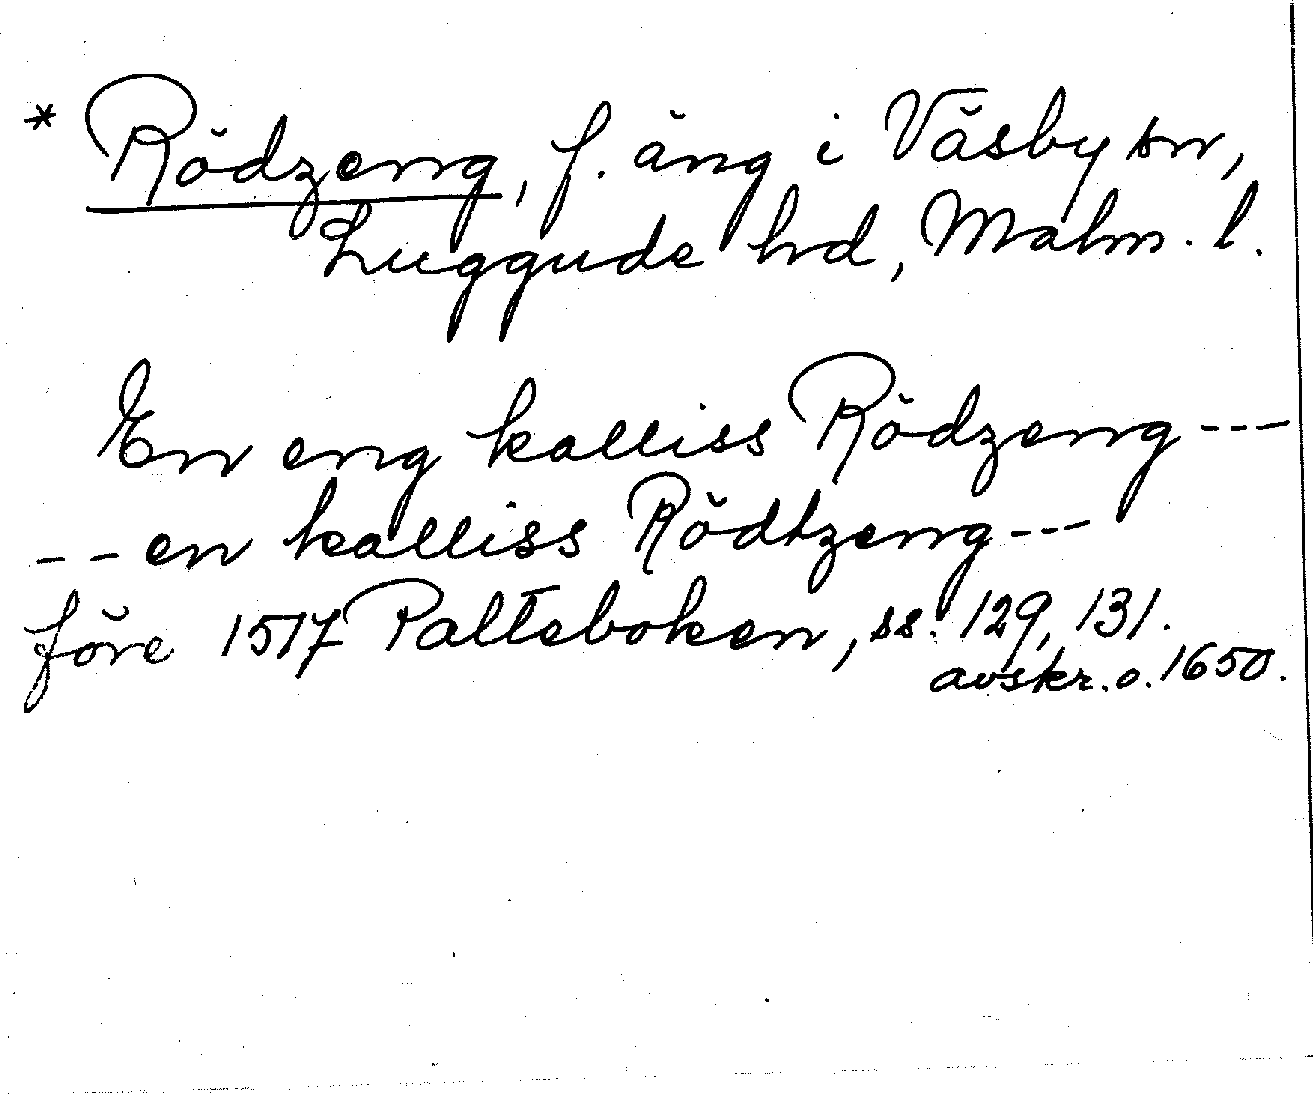 * Rödzeng, f. äng i Väsby sn,
Luggude hd, Malm. l.
En eng kalliss Rödzeng ---
-- en kalliss Rödtzeng ---
före 1517 Palteboken, ss. 129, 131.
avskr. o. 1650.